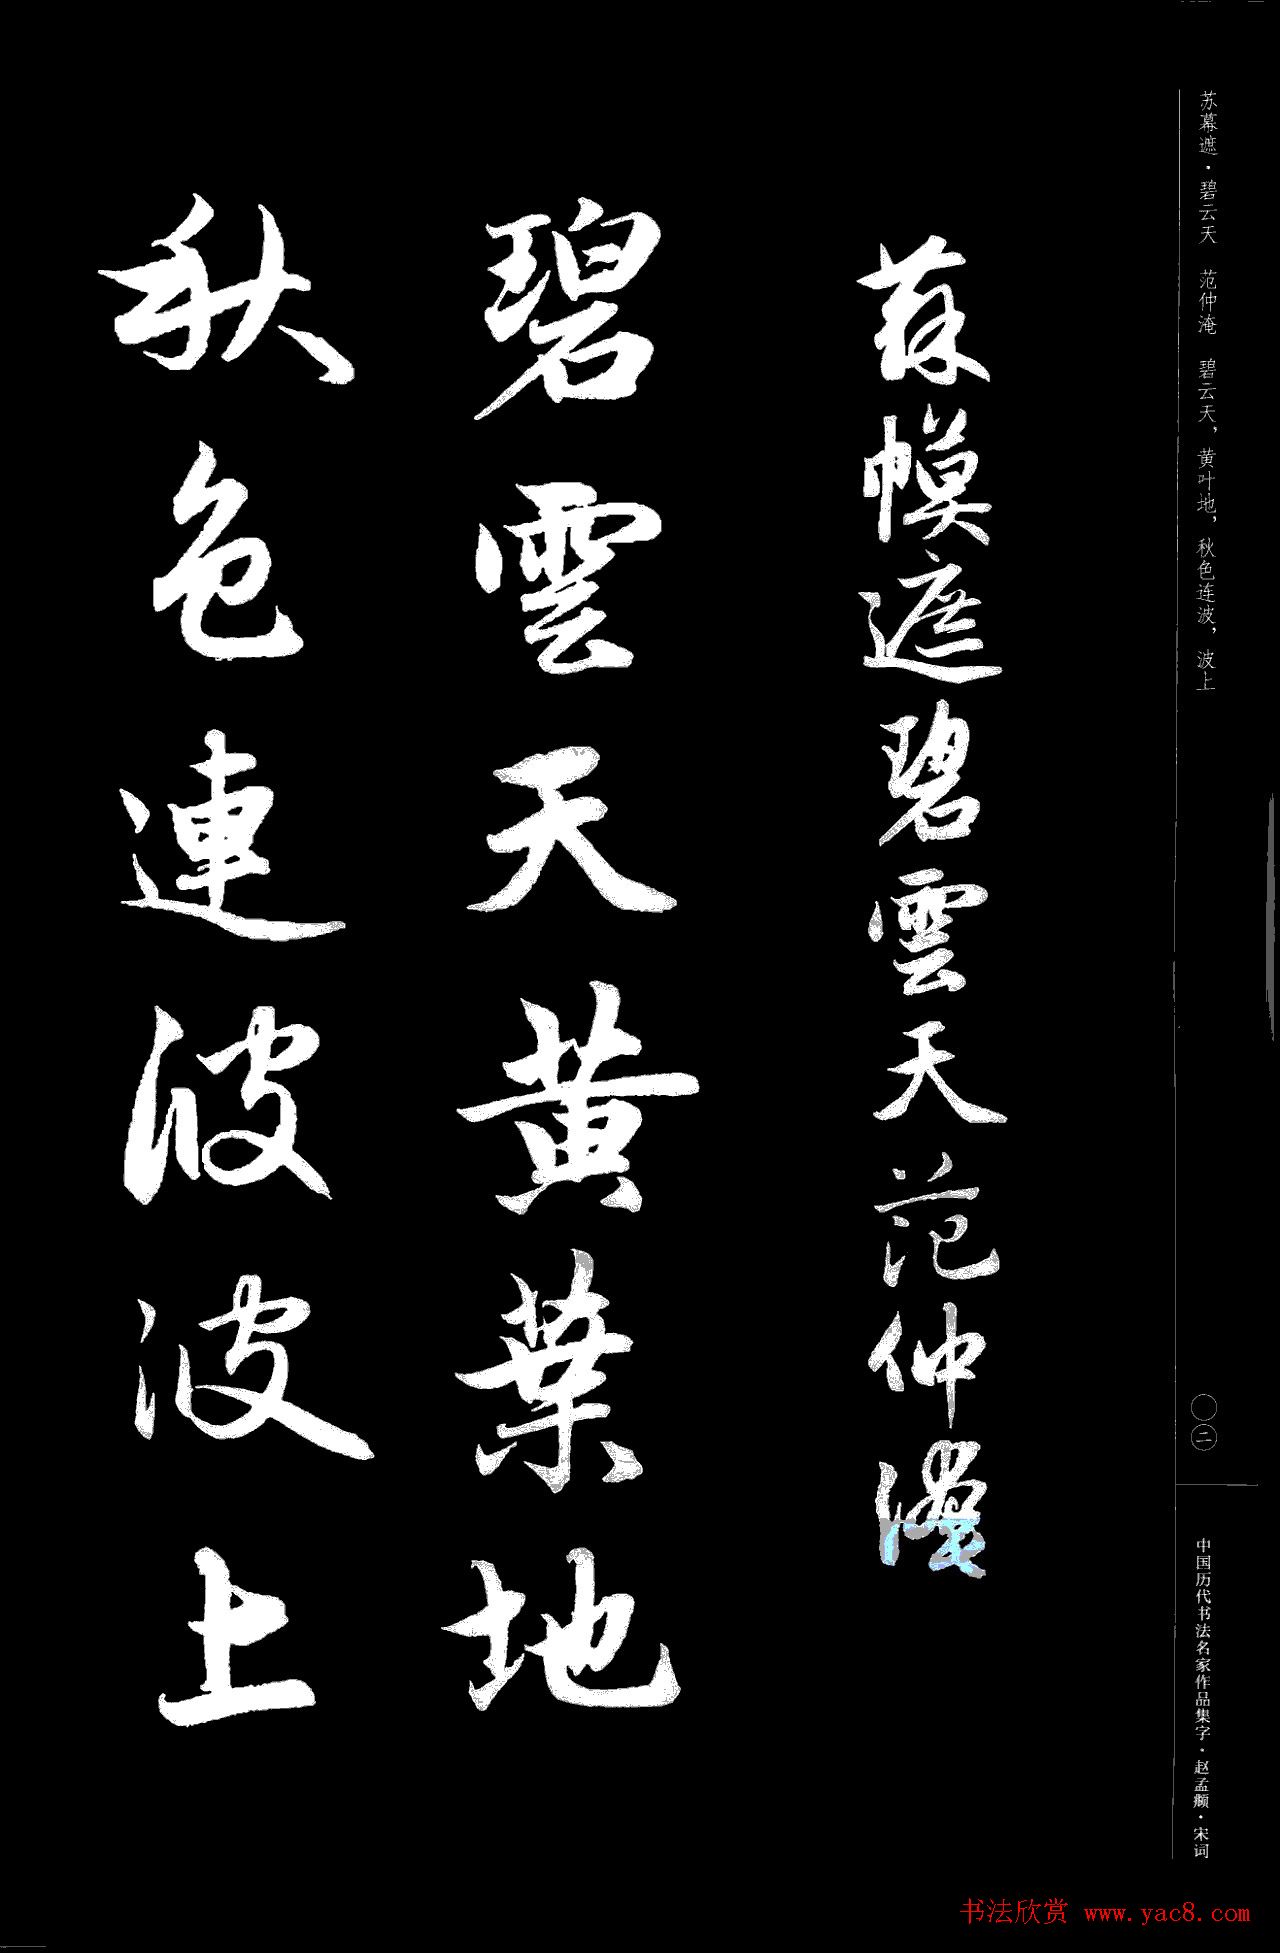 苏幕遮·碧云天　范仲淹　碧云天，黄叶地，秋色连波，波上
〇二
中国历代书法名家作品集字·赵孟頫·宋词
蘇幙遮碧雲天范仲淹
碧雲天黄葉地
秋色連波波上
书法欣赏 www.yac8.com